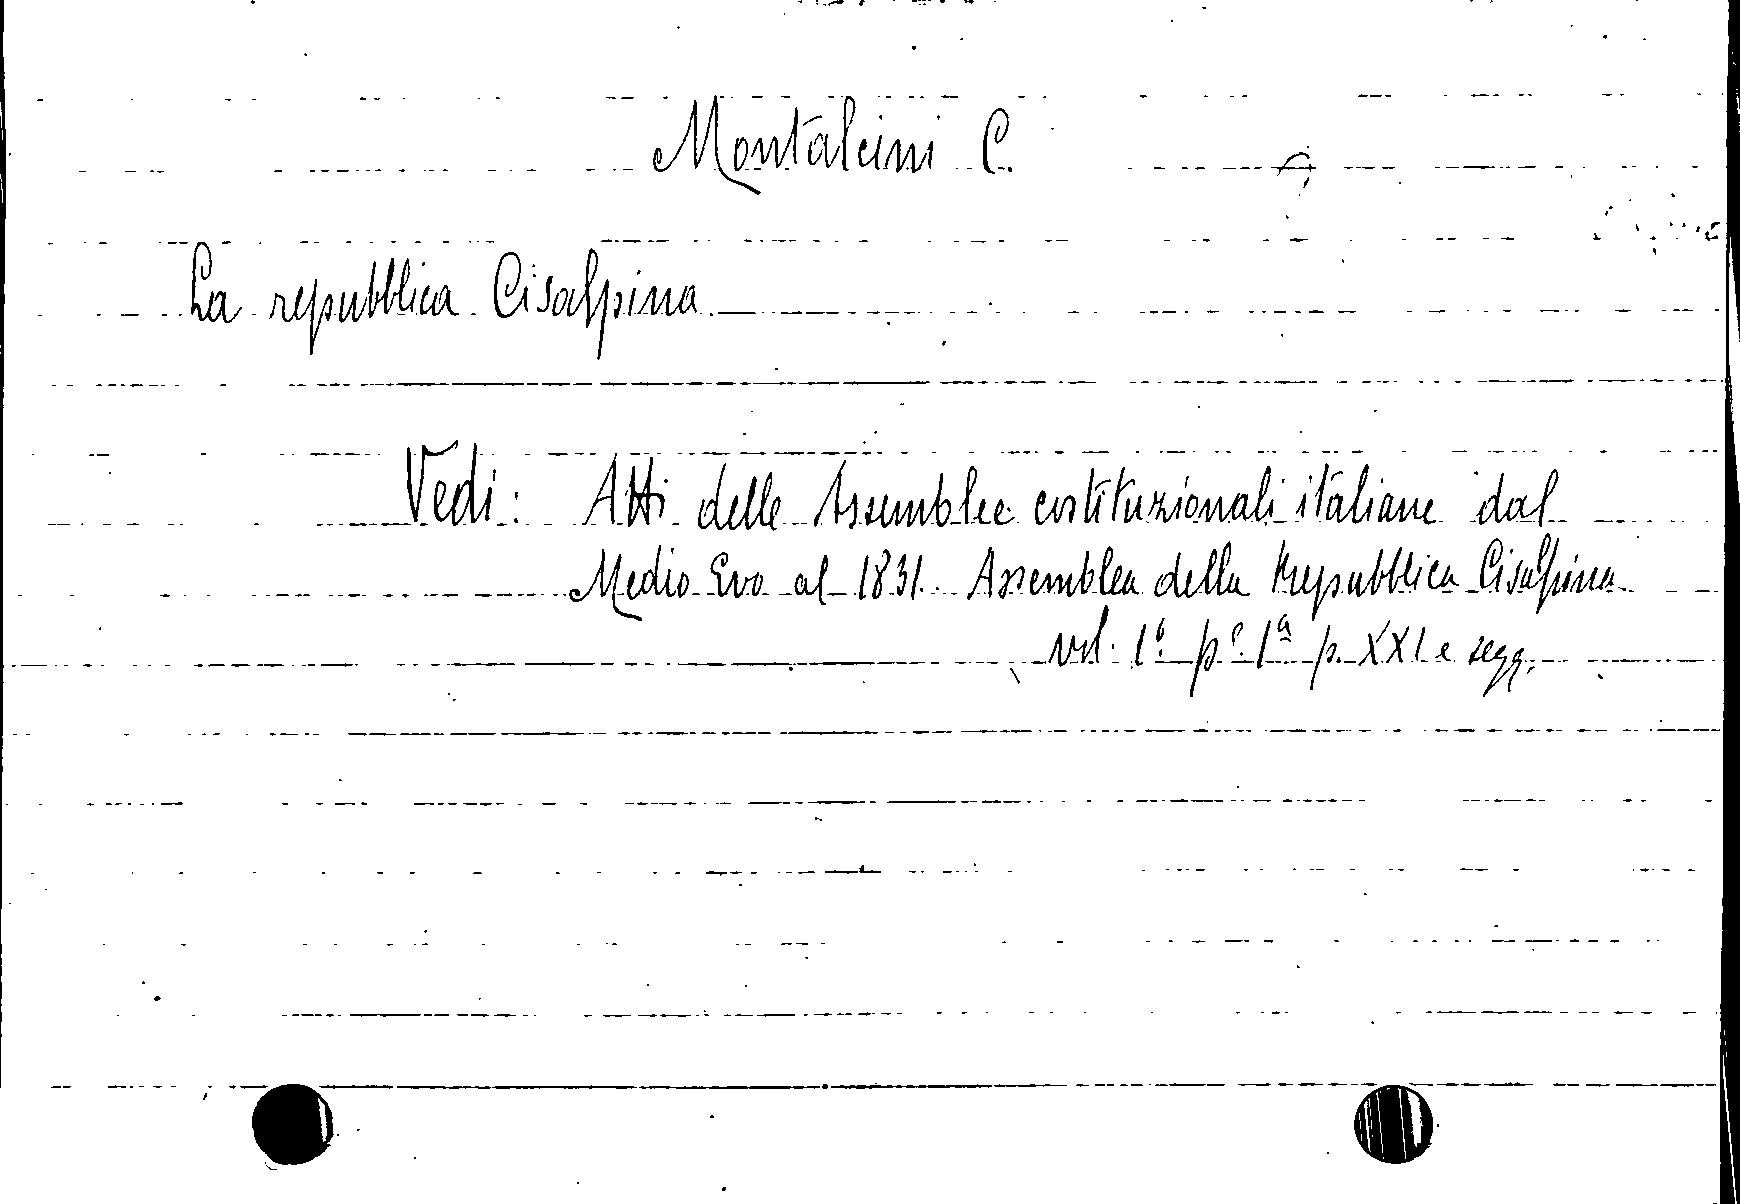 Montalcini C.
La repubblica Cisalpina
Vedi: Atti delle Assemblee costituzionali italiane dal
Medio Evo al 1831. Assemblea della Repubblica Cisalpina
vol. 1º pe. 1ª p. XXI e segg.